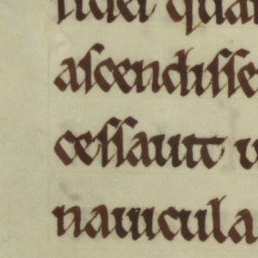 fidei qua
ascendisse
cessauit v
nauicula